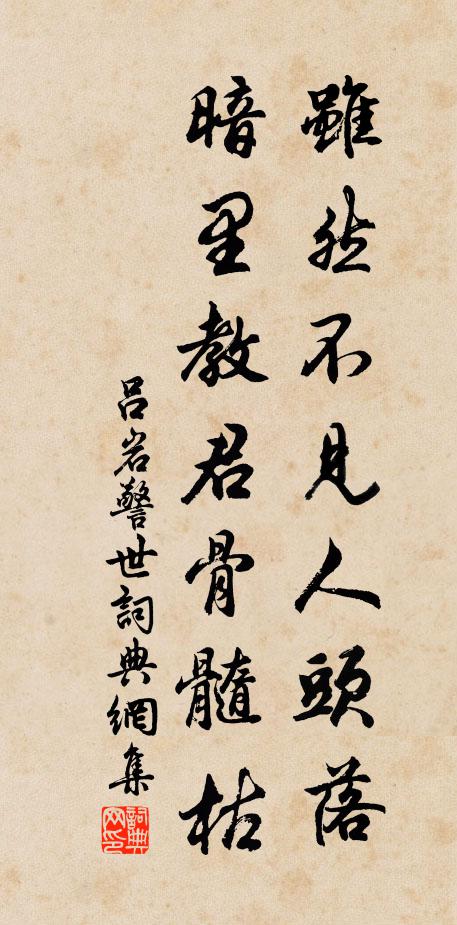 雖然不見人頭落
暗里教君骨髓枯
吕岩警世詞典網集
詞典网印